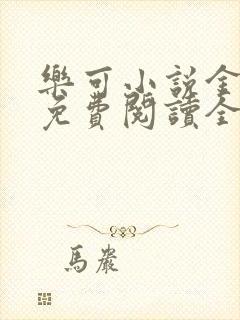 樂可小說全
免費閱讀全
馬嚴